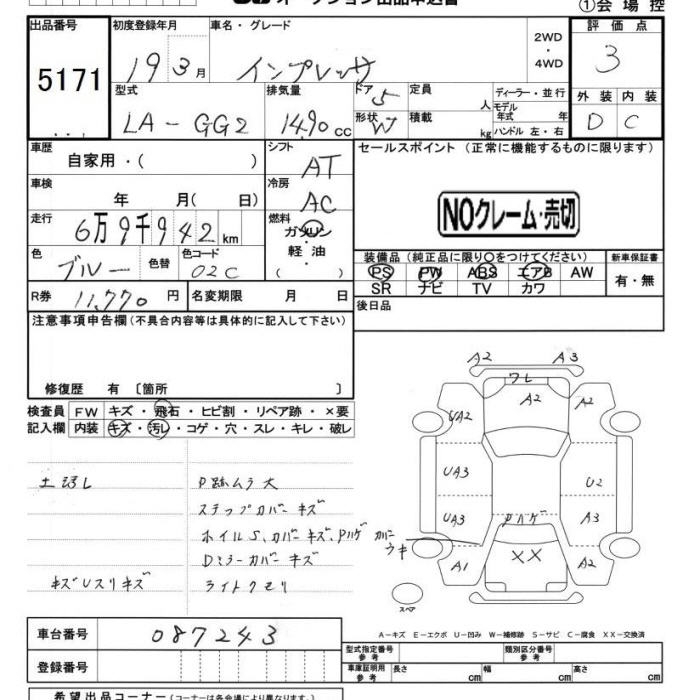 ①会場控
出品番号 初度登録年月 車名・グレード 2WD 評価点
5171 19 3月 インプレッサ ・4WD 3
型式 排気量 ドア 5 定員 人 ディーラー・並行 外装 内装
LA-GG2 1490cc 形状 W 積載 kg モデル年式 年 D C
ハンドル 左・右
車歴 自家用・( ) シフト AT セールスポイント (正常に機能するものに限ります)
車検 年 月( 日) 冷房 AC
NOクレーム・売切
走行 6万9千942km 燃料 ガソリン
軽油
( )
色 ブルー 色替 色コード 02C
装備品(純正品に限り○をつけてください) 新車保証書
PS PW ABS エアB AW 有・無
SR ナビ TV カワ
R券 11,770円 名変期限 月 日 後日品
注意事項申告欄(不具合内容等は具体的に記入して下さい)
修復歴 有〔箇所 〕
検査員 FW キズ・飛石・ヒビ割・リペア跡・×要
記入欄 内装 キズ・汚レ・コゲ・穴・スレ・キレ・破レ
P跡ムラ大
ステップカバーキズ
ホイルS、カバーキズ、Pハゲ
Dミラーカバーキズ
ライトクモリ
A2 A3
ワレ
A2
UA2 A2
UA3 U2
UA3 Pハゲ A3
XX
A1 A2
スペア
A-キズ E-エクボ U-凹み W-補修跡 S-サビ C-腐食 XX-交換済
車台番号 087243
型式指定番号 類別区分番号
登録番号
車庫証明用参考 長さ cm 幅 cm 高さ cm
希望出品コーナー(コーナーは各会場により異なります。)